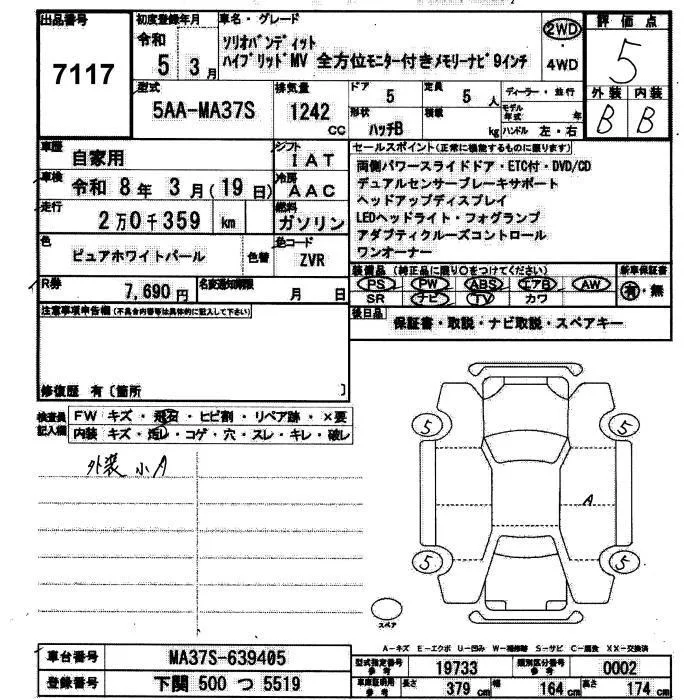 出品番号
7117
初度登録年月
令和
5 3月
車名・グレード
ソリオバンディット
ハイブリッドMV 全方位モニター付きメモリーナビ9インチ
2WD
・
4WD
評価点
5
外装 内装
B B
型式
5AA-MA37S
排気量
1242
CC
ドア
5
定員
5 人
形状
ハッチB
積載
kg
ディーラー・並行
モデル年式 年
ハンドル 左・右
車歴
自家用
シフト
IAT
車検
令和 8年 3月(19日)
冷房
AAC
走行
2万0千359 km
燃料
ガソリン
色
ピュアホワイトパール
色替
色コード
ZVR
R券
7,690円
名変通知期限
月 日
セールスポイント(正常に機能するものに限ります)
両側パワースライドドア・ETC付・DVD/CD
デュアルセンサーブレーキサポート
ヘッドアップディスプレイ
LEDヘッドライト・フォグランプ
アダプティクルーズコントロール
ワンオーナー
装備品(純正品に限り○をつけてください)
PS PW ABS エアB AW
SR ナビ TV カワ
新車保証書
有・無
後日品
保証書・取説・ナビ取説・スペアキー
注意事項申告欄(不具合内容等は具体的に記入して下さい)
修復歴 有〔箇所 〕
検査員記入欄
FW キズ・飛石・ヒビ割・リペア跡・×要
内装 キズ・汚レ・コゲ・穴・スレ・キレ・破レ
外装 小A
5
5
A
5
5
スペア
A−キズ E−エクボ U−凹み W−補修跡 S−サビ C−腐食 XX−交換済
車台番号
MA37S-639405
登録番号
下関 500 つ 5519
型式指定番号
参考
19733
類別区分番号
参考
0002
車庫証明用
参考
長さ
379 cm
幅
164 cm
高さ
174 cm